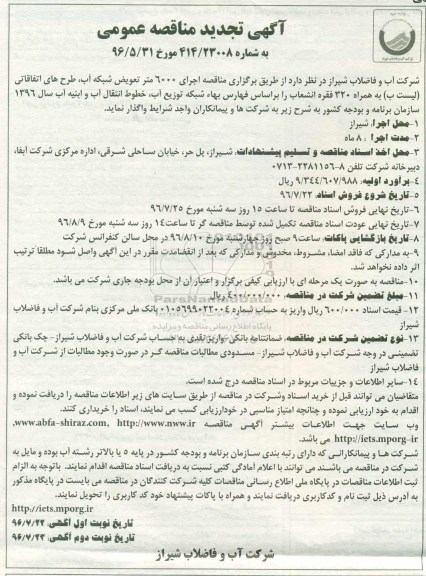 آگهی تجدید مناقصه عمومی
به شماره ۴۱۴/۲۳۰۰۸ مورخ ۹۶/۵/۳۱
شرکت آب و فاضلاب شیراز در نظر دارد از طریق برگزاری مناقصه اجرای ۶۰۰۰ متر تعویض شبکه آب، طرح های اتفاقاتی
(لیست ب) به همراه ۳۲۰ فقره انشعاب را براساس فهارس بهاء شبکه توزیع آب، خطوط انتقال آب و ابنیه آب سال ۱۳۹۶
سازمان برنامه و بودجه کشور به شرح زیر به شرکت ها و پیمانکاران واجد شرایط واگذار نماید.
۱-محل اجرا: شیراز
۲-مدت اجرا: ۸ ماه
۳-محل اخذ اسناد مناقصه و تسلیم پیشنهادات: شیراز، پل حر، خیابان ساحلی شرقی، اداره مرکزی شرکت آبفا،
دبیرخانه شرکت تلفن ۸-۲۲۸۱۱۵۶-۰۷۱۳
۴-برآورد اولیه: ۹/۳۴۴/۶۰۷/۹۸۸ ریال
۵-تاریخ شروع فروش اسناد: ۹۶/۷/۲۲
۶-تاریخ نهایی فروش اسناد مناقصه تا ساعت ۱۵ روز سه شنبه مورخ ۹۶/۷/۲۵
۷-تاریخ نهایی عودت اسناد مناقصه تکمیل شده توسط مناقصه گر تا ساعت ۱۴ روز سه شنبه مورخ ۹۶/۸/۹
۸-تاریخ بازگشایی پاکات: ساعت ۹ صبح روز چهارشنبه مورخ ۹۶/۸/۱۰ در محل سالن کنفرانس شرکت
۹-به مدارکی که فاقد امضا، مشروط، مخدوش و مدارکی که بعد از انقضامدت مقرر در این آگهی واصل شود مطلقا ترتیب
اثر داده نخواهد شد.
۱۰-مناقصه به صورت یک مرحله ای با ارزیابی کیفی برگزار و اعتبار آن از محل بودجه جاری شرکت می باشد.
۱۱-مبلغ تضمین شرکت در مناقصه: ۴۰۰/۰۰۰/۰۰۰ ریال
۱۲- قیمت اسناد ۶۰۰/۰۰۰ ریال واریز به حساب شماره ۰۱۰۵۶۹۹۰۲۲۰۰۴ بانک ملی مرکزی بنام شرکت آب و فاضلاب
شیراز
۱۳-نوع تضمین شرکت در مناقصه: ضمانتنامه بانکی-واریز نقدی به حساب شرکت آب و فاضلاب شیراز-چک بانکی
تضمینی در وجه شرکت آب و فاضلاب شیراز-مسدودی مطالبات مناقصه گر در صورت وجود مطالبات از شرکت آب و
فاضلاب شیراز
۱۴-سایر اطلاعات و جزییات مربوط در اسناد مناقصه درج شده است.
متقاضیان می توانند قبل از خرید اسناد و شرکت در مناقصه از طریق سایت های زیر اطلاعات مناقصه را دریافت نموده و
اقدام به خود ارزیابی نموده و چنانچه امتیاز مناسبی در خودارزیابی کسب می نمایند، اسناد را خریداری کنند.
وب سایت جهت اطلاعات بیشتر آگهی مناقصه www.abfa-shiraz.com, http://www.nww.ir,
http://iets.mporg-ir می باشد.
شرکت ها و پیمانکارانی که دارای رتبه بندی سازمان برنامه و بودجه کشور در پایه ۵ یا بالاتر رشته آب بوده و مایل به
شرکت در مناقصه می باشند می توانند با اعلام آمادگی کتبی نسبت به دریافت اسناد مناقصه اقدام نمایند. باتوجه به الزام
ثبت اطلاعات مناقصات در پایگاه ملی اطلاع رسانی مناقصات کلیه شرکت کنندگان در مناقصه می بایست در پایگاه مذکور
به آدرس ذیل ثبت نام و کدکاربری دریافت نمایند و همراه با پاکات پیشنهاد خود کد کاربری را تحویل نمایند.
http://iets.mporg.ir
تاریخ نوبت اول آگهی: ۹۶/۷/۲۲
تاریخ نوبت دوم آگهی: ۹۶/۷/۲۳
شرکت آب و فاضلاب شیراز